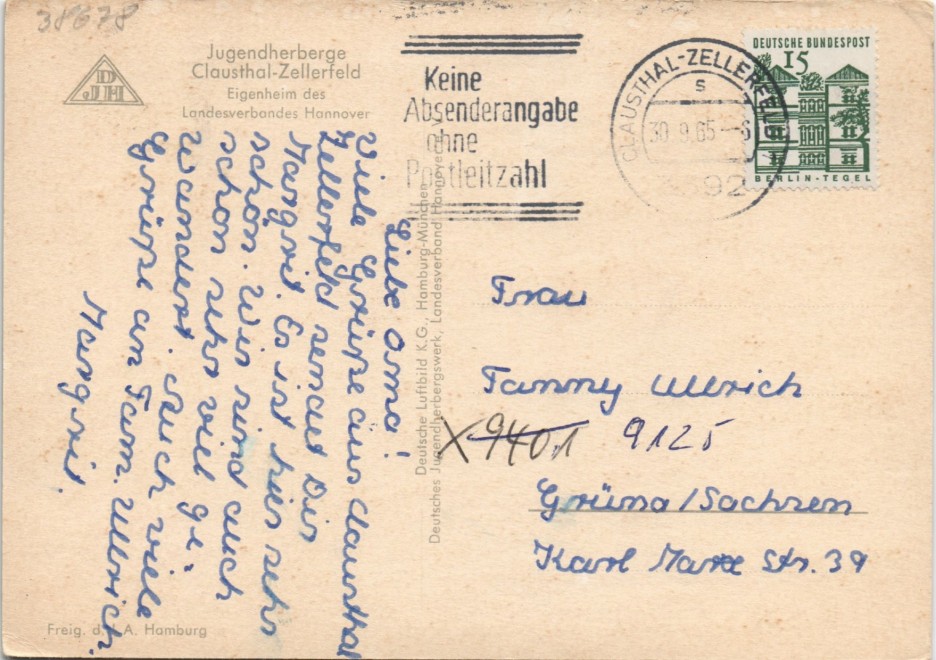 38678
Jugendherberge
Clausthal-Zellerfeld
Eigenheim des
Landesverbandes Hannover
DJH
Keine
Absenderangabe
ohne
Postleitzahl
CLAUSTHAL-ZELLERFELD
s
30.9.65
92
DEUTSCHE BUNDESPOST
15
BERLIN-TEGEL
Liebe Oma!
Viele Grüße aus Clausthal
Zellerfeld sendet Dir
Margrit. Es ist hier sehr
schön. Wir sind auch
schon sehr viel ge-
wandert. Auch viele
Grüße an Fam. Ullrich.
Margrit.
Deutsche Luftbild K.G., Hamburg-München
Deutsches Jugendherbergswerk, Landesverband Hannover
Frau
Tammy Ullrich
X9401 9125
Grüna/Sachsen
Karl Marx Str. 39
Freig. d. L. A. Hamburg